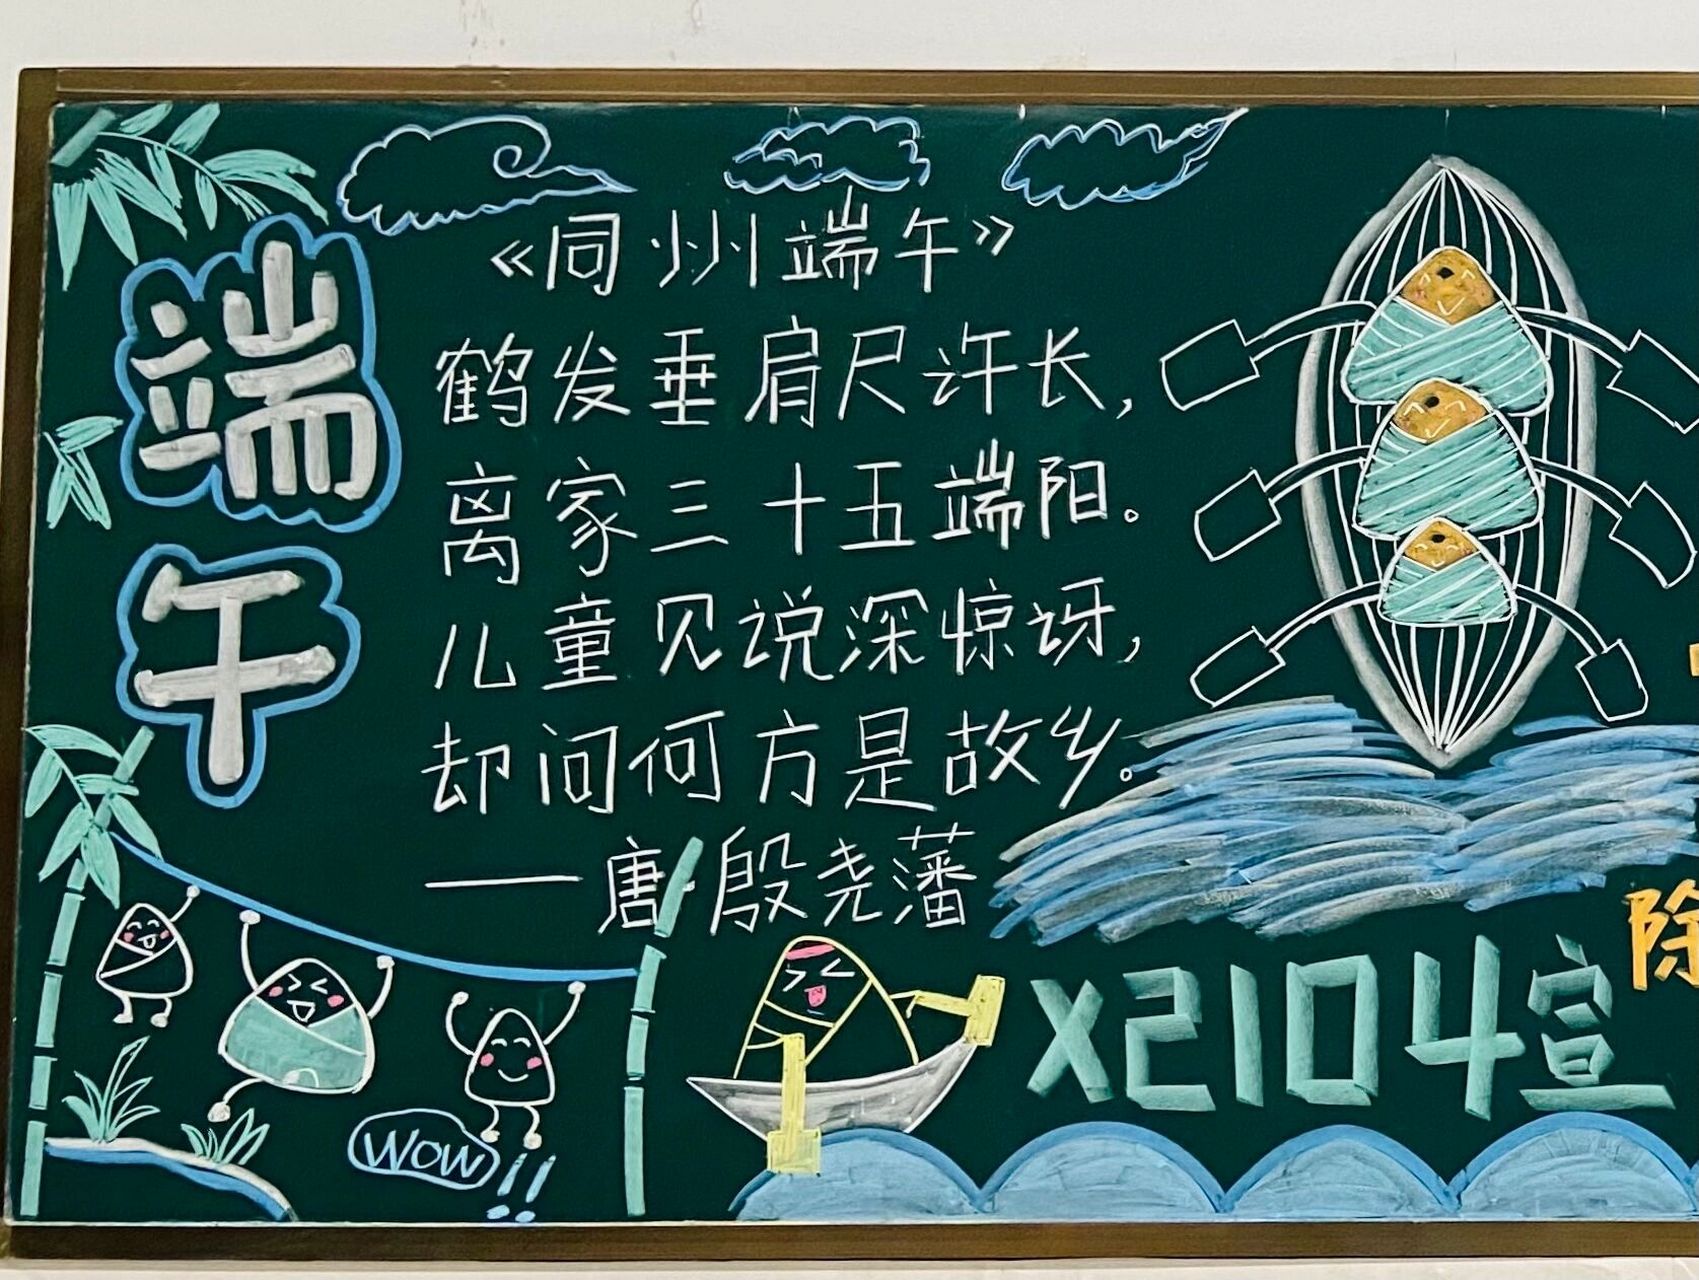 端午
《同州端午》
鹤发垂肩尺许长，
离家三十五端阳。
儿童见说深惊讶，
却问何方是故乡。
——唐·殷尧藩
WOW!!
X2104宣
除